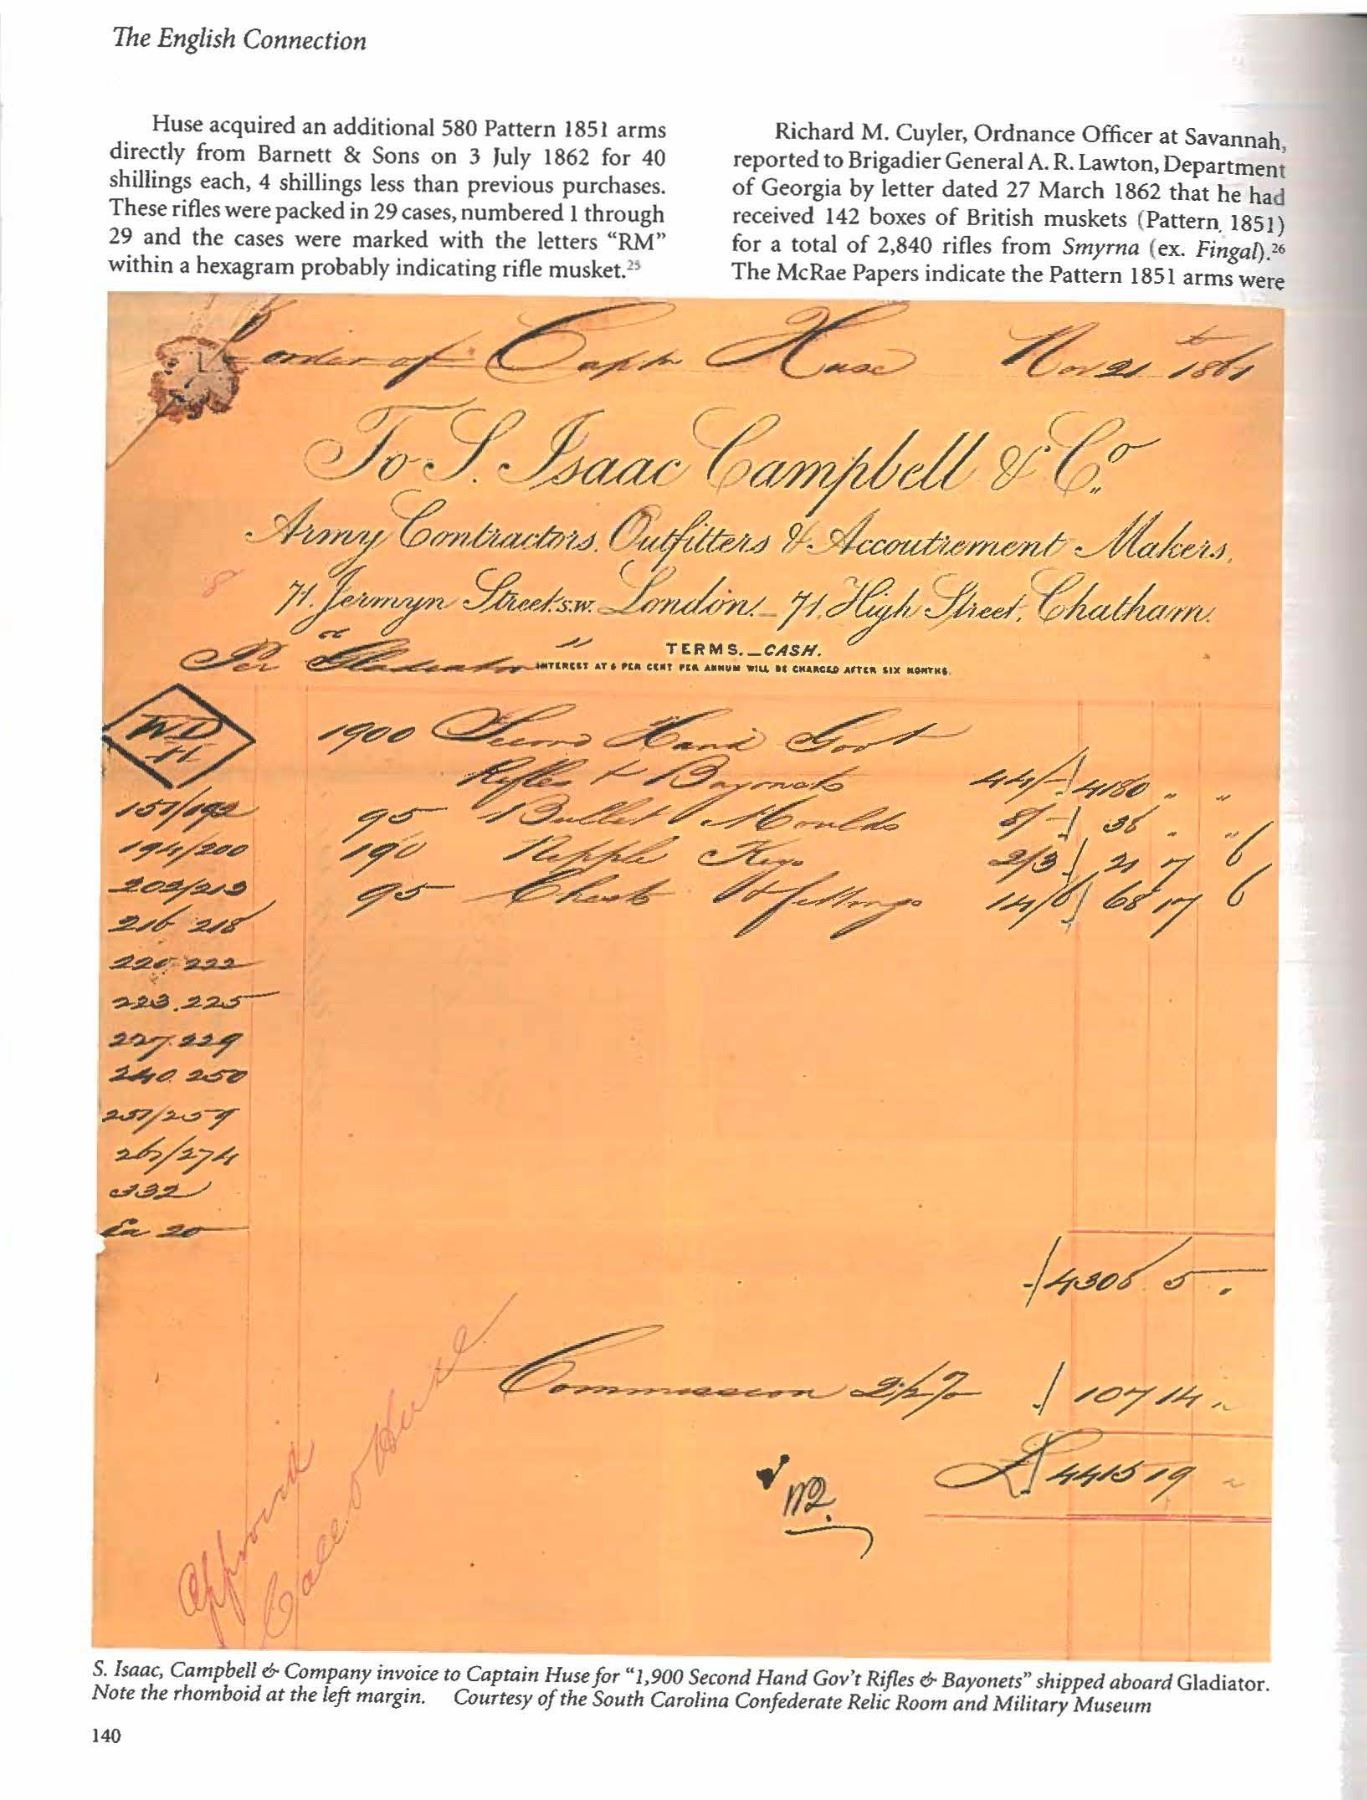 The English Connection
Huse acquired an additional 580 Pattern 1851 arms
directly from Barnett & Sons on 3 July 1862 for 40
shillings each, 4 shillings less than previous purchases.
These rifles were packed in 29 cases, numbered 1 through
29 and the cases were marked with the letters “RM”
within a hexagram probably indicating rifle musket.25
Richard M. Cuyler, Ordnance Officer at Savannah,
reported to Brigadier General A. R. Lawton, Department
of Georgia by letter dated 27 March 1862 that he had
received 142 boxes of British muskets (Pattern 1851)
for a total of 2,840 rifles from Smyrna (ex. Fingal).26
The McRae Papers indicate the Pattern 1851 arms were
order of Captn Huse Nov 21st 1861
To S. Isaac Campbell & Co.
Army Contractors, Outfitters & Accoutrement Makers,
71, Jermyn Street, S.W. London. _ 71, High Street, Chatham.
TERMS._CASH.
Per Gladiator INTEREST AT 5 PER CENT PER ANNUM WILL BE CHARGED AFTER SIX MONTHS.
1900 Second Hand Govt
Rifles & Bayonets 44/- 4180 " "
157/192 95 Bullet Moulds 8/- 38 " "
194/200 190 Nipple Keys 2/3 21 7 6
202/213 95 Chests & fittings 14/6 68 17 6
216 218
220 222
223.225
227.229
240.250
257/259
267/274
332
Ea 20
4308 5 "
Commission 2½% 107 14 "
£4415 19 "
Approved
Caleb Huse
S. Isaac, Campbell & Company invoice to Captain Huse for “1,900 Second Hand Gov’t Rifles & Bayonets” shipped aboard Gladiator.
Note the rhomboid at the left margin. Courtesy of the South Carolina Confederate Relic Room and Military Museum
140